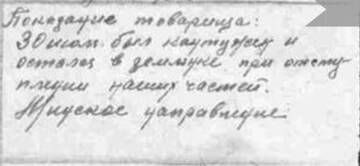 Показание товарища:
30 июл. был контужен и
остался в землянке при отсту
плении наших частей.
Минское направление